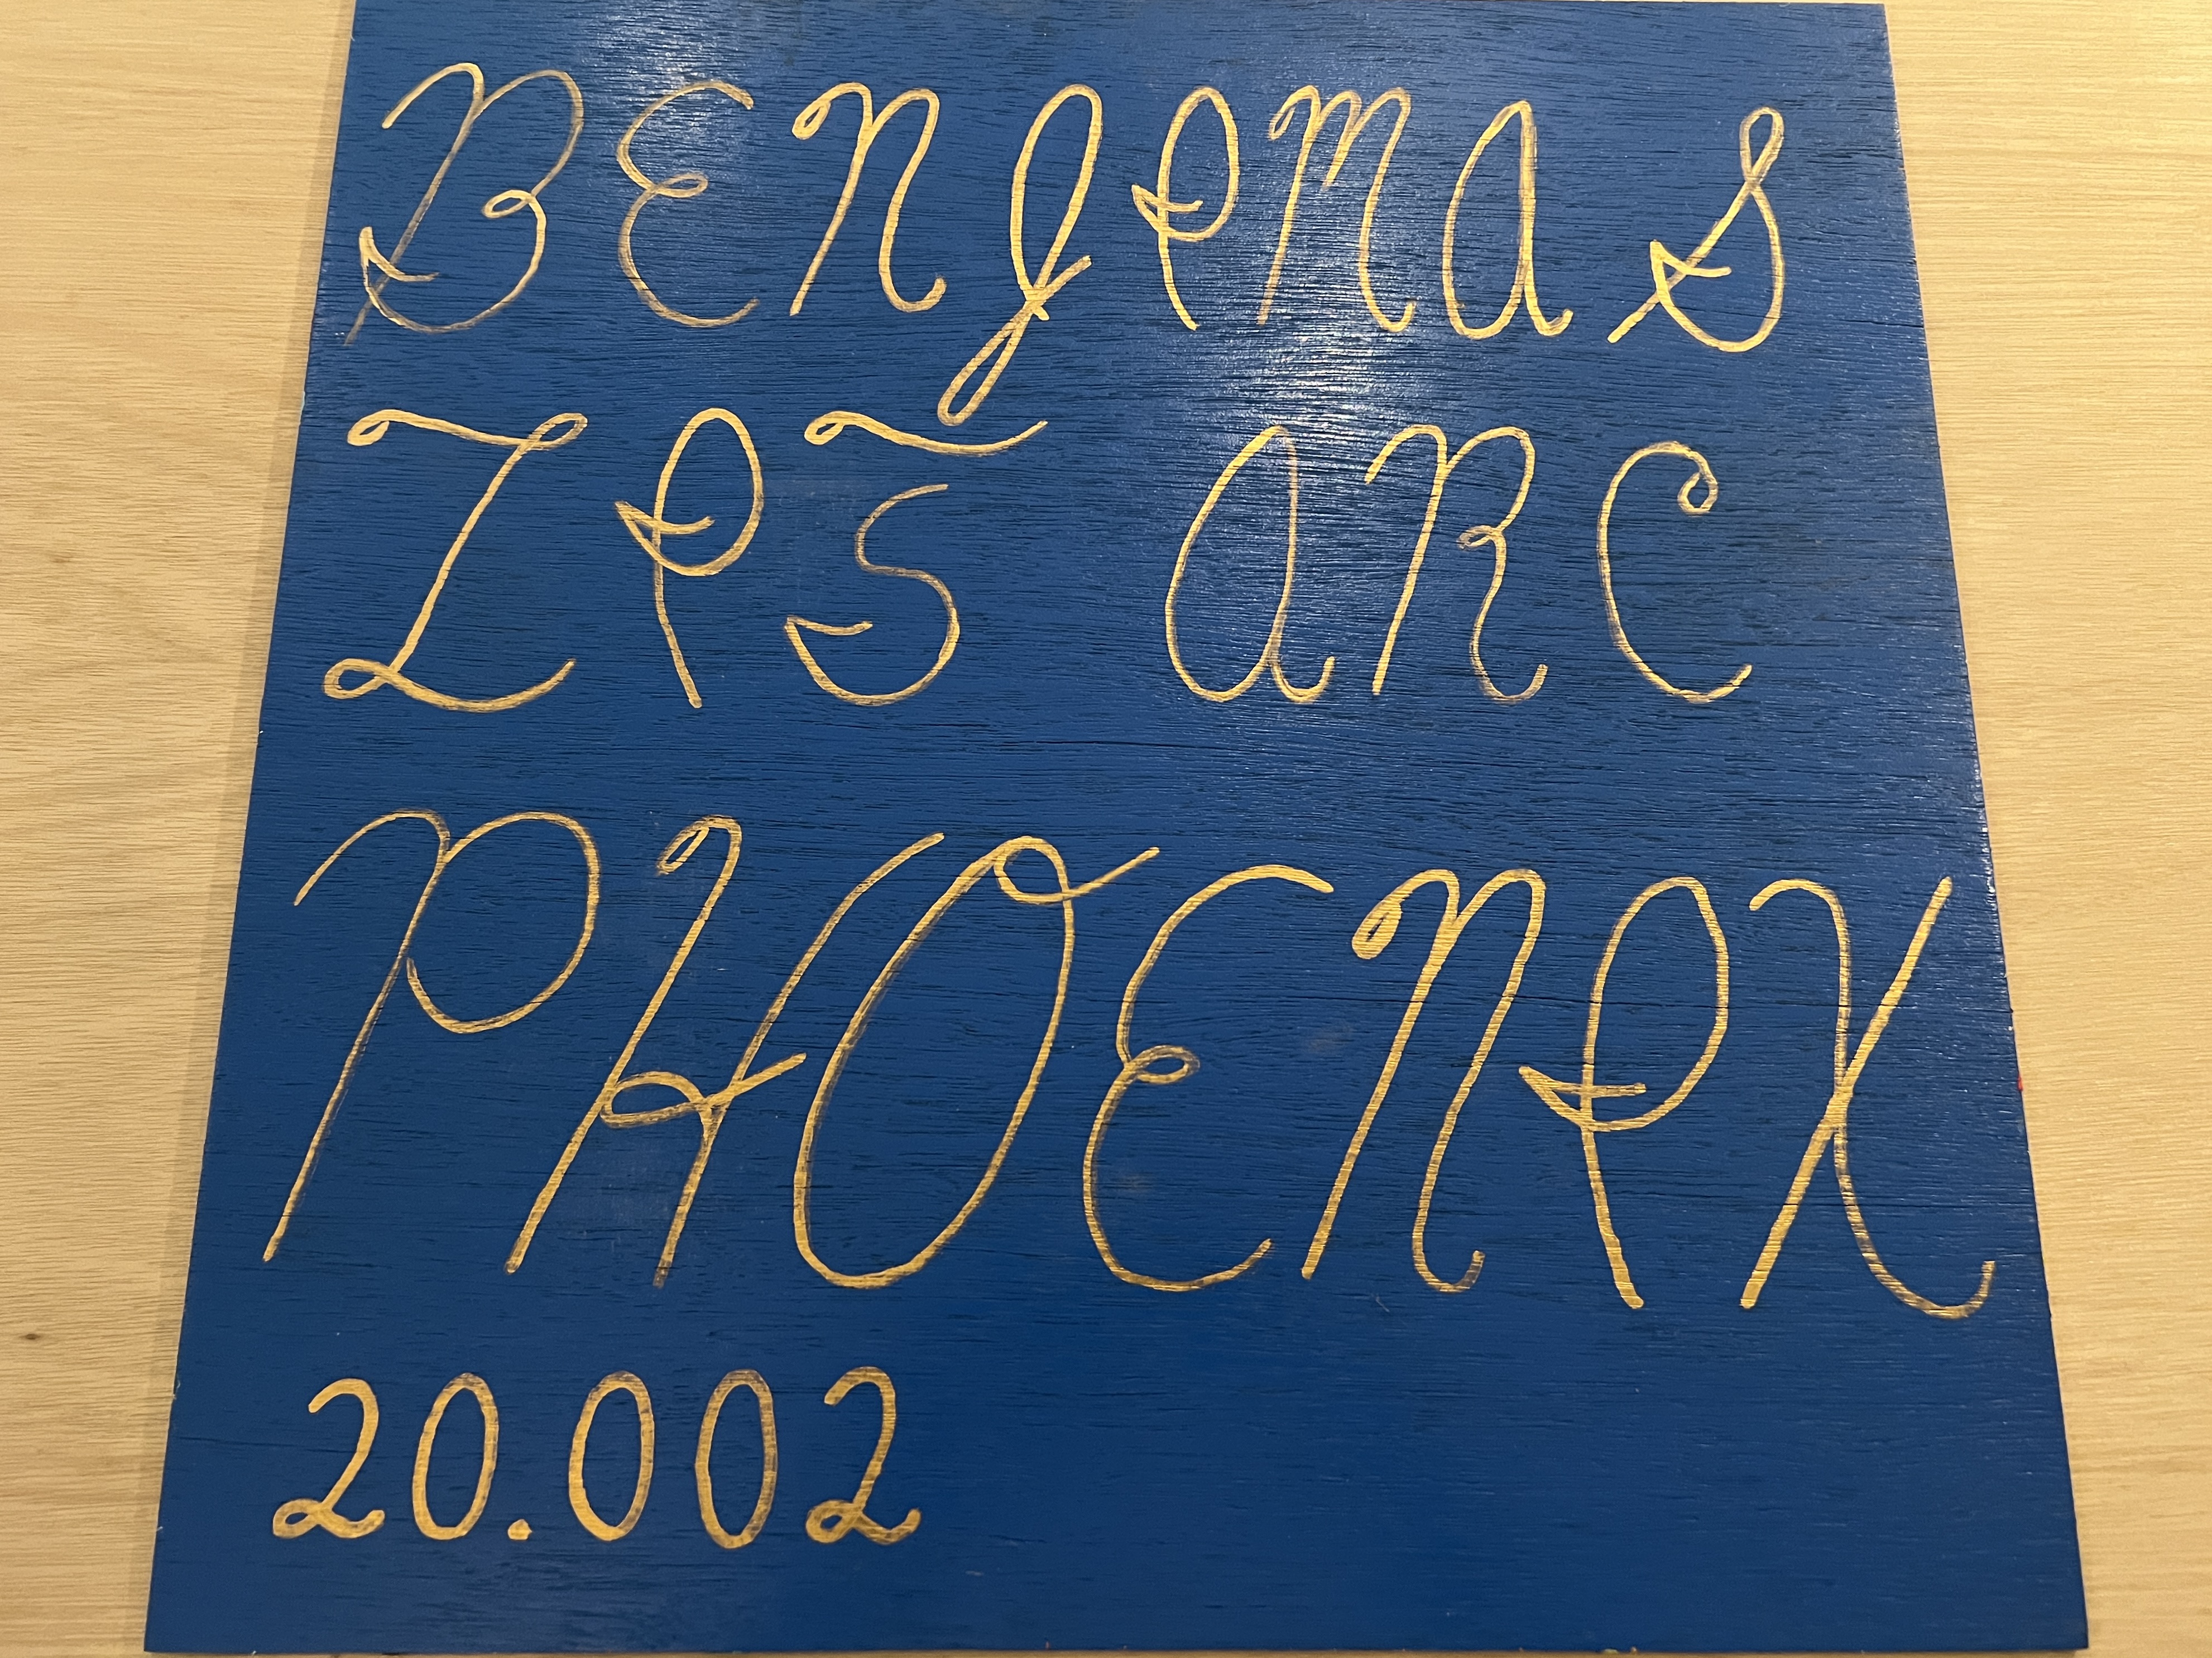 BENJIMAS
ZIT ARC
PHOENIX
20.002